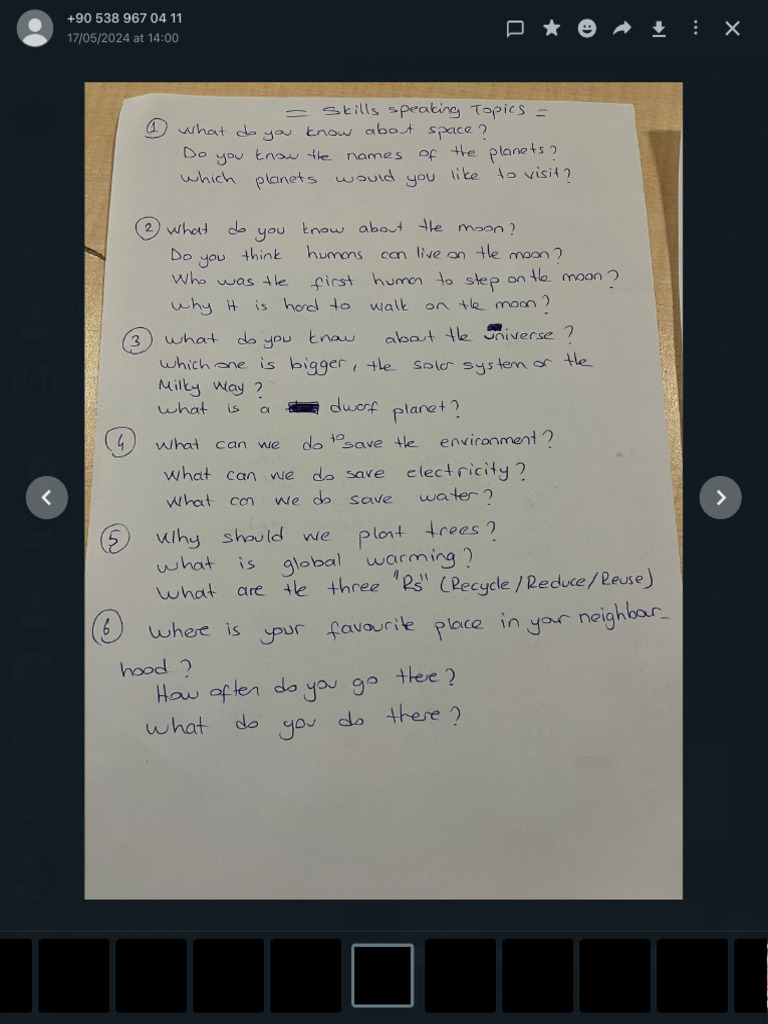 +90 538 967 04 11
17/05/2024 at 14:00
= Skills speaking Topics =
1 What do you know about space?
Do you know the names of the planets?
Which planets would you like to visit?
2 What do you know about the moon?
Do you think humans can live on the moon?
Who was the first human to step on the moon?
Why it is hard to walk on the moon?
3 What do you know about the Universe?
Which one is bigger, the solar system or the
Milky Way?
What is a dwarf planet?
4 What can we do to save the environment?
What can we do save electricity?
What can we do save water?
5 Why should we plant trees?
What is global warming?
What are the three "Rs" (Recycle/Reduce/Reuse)
6 Where is your favourite place in your neighbour-
hood?
How often do you go there?
What do you do there?